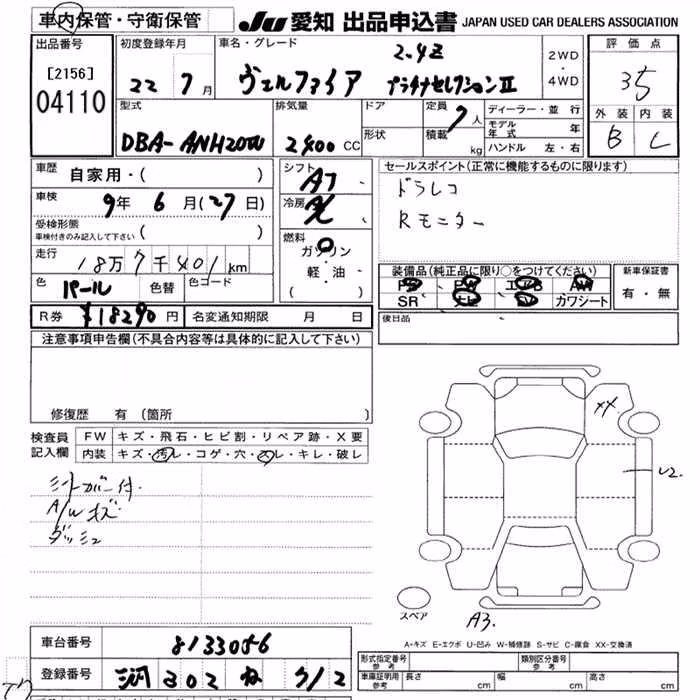 車内保管・守衛保管
JU 愛知 出品申込書 JAPAN USED CAR DEALERS ASSOCIATION
出品番号
[2156]
04110
初度登録年月
22 7 月
車名・グレード
2.4Z
ヴェルファイア プラチナセレクションⅡ
2WD
・
4WD
評価点
3.5
外装 内装
B C
型式
DBA-ANH20W
排気量
2400 CC
ドア
形状
定員
7 人
積載
kg
ディーラー・並行
モデル年式 年
ハンドル 左・右
車歴 自家用・( )
車検 9年 6月(27日)
受検形態
車検付きのみ記入して下さい ( )
走行 18万7千401km
色 パール 色替 色コード
R券 ¥18290 円 名変通知期限 月 日
シフト
AT
冷房
AC
燃料
ガソリン
・
軽・油
( )
セールスポイント(正常に機能するものに限ります)
ドラレコ
Rモニター
装備品(純正品に限り○をつけてください)
PS PW エアB AW
SR ナビ TV カワシート
新車保証書
有・無
後日品
注意事項申告欄(不具合内容等は具体的に記入して下さい)
修復歴 有 (箇所 )
検査員
記入欄
FW キズ・飛石・ヒビ割・リペア跡・X要
内装 キズ・汚レ・コゲ・穴・スレ・キレ・破レ
シートカバー付
A/Wキズ
ダッシュ
XX
U2.
スペア
A3.
A-キズ E-エクボ U-凹み W-補修跡 S-サビ C-腐食 XX-交換済
車台番号 8133056
登録番号 三河 302 ね 712
形式指定番号
参考
類別区分番号
参考
車庫証明用
参考
長さ cm 幅 cm 高さ cm